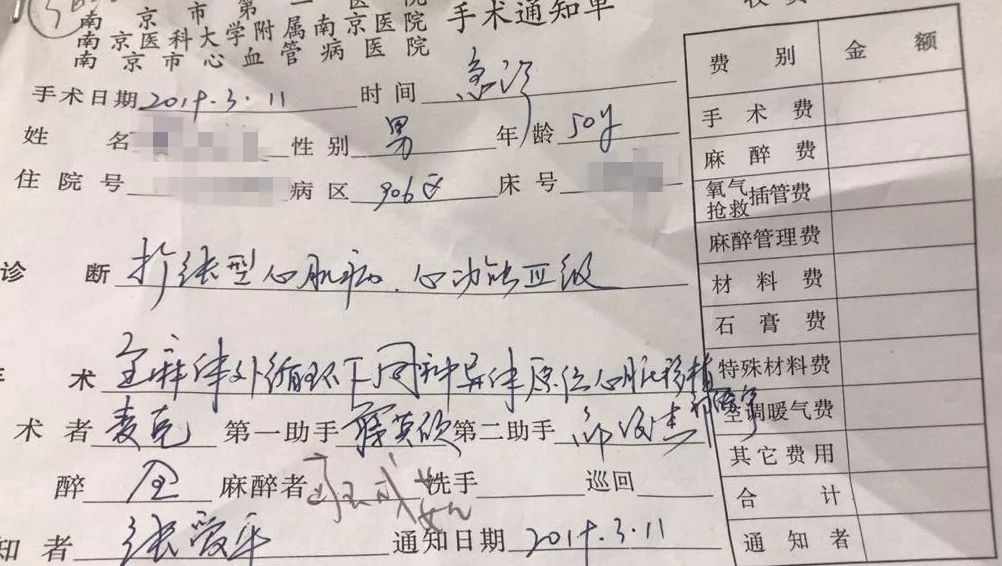 南京市第一医院
南京医科大学附属南京医院
南京市心血管病医院
手术通知单
收费
手术日期 2019.3.11 时间 急诊
姓名 性别 男 年龄 50y
住院号 病区 906区 床号
诊断 扩张型心肌病.心功能Ⅲ级
术 全麻体外循环下同种异体原位心脏移植
术者 麦克 第一助手 第二助手
醉 全 麻醉者 洗手 巡回
知者 张爱平 通知日期 2019.3.11
费别 金额
手术费
麻醉费
氧气抢救插管费
麻醉管理费
材料费
石膏费
特殊材料费
空调暖气费
其它费用
合计
通知者